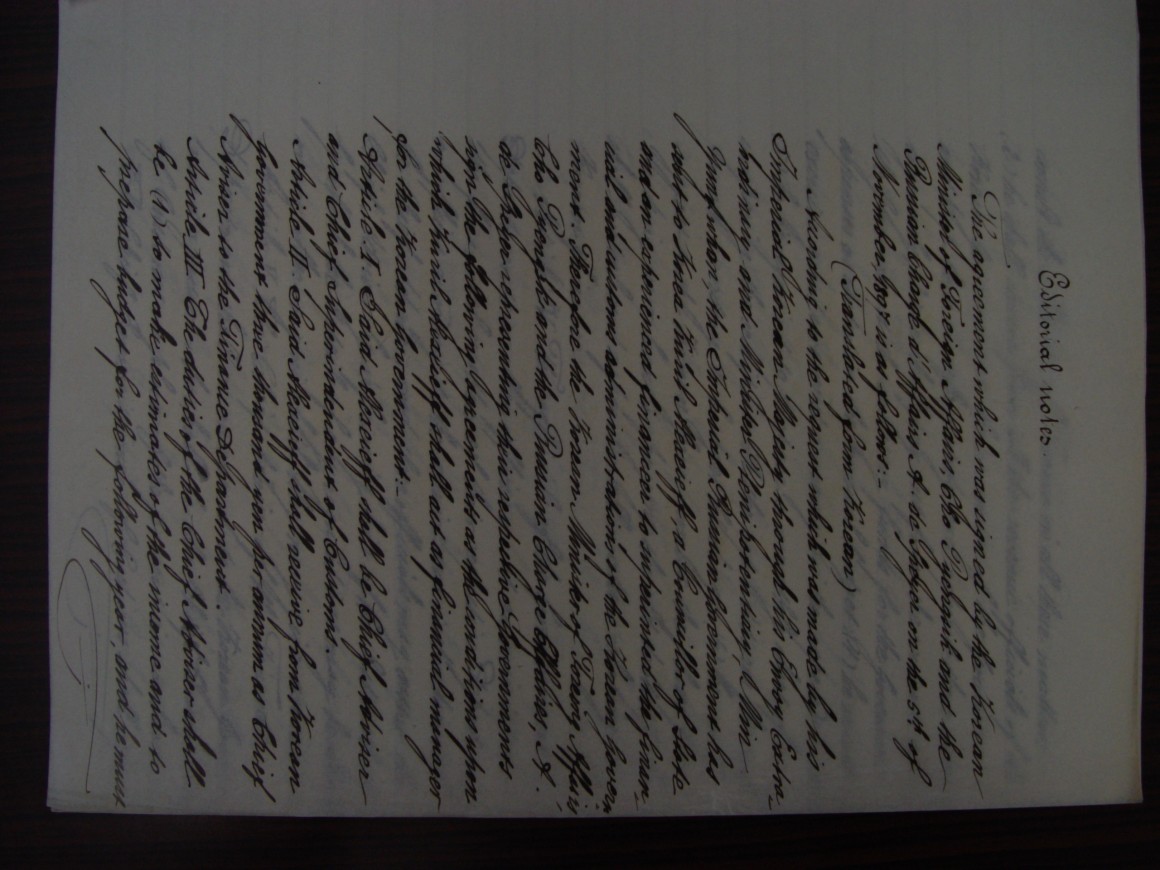 Editorial notes.
The agreement which was signed by the Korean
Minister of Foreign Affairs, Cho Pyengsik and the
Russian Chargé d'Affairs A. de Speyer on the 5th of
November, 1897 is as follows:-
(Translated from Korean)
According to the request which was made by his
Imperial Korean Majesty through his Envoy Extra-
ordinary and Minister Plenipotentiary, Min
Yonghwan, the Imperial Russian Government has
sent to Korea Kiril Alexeieff a Councillor of State
and an experienced financier to superintend the finan-
cial and customs administrations of the Korean Govern-
ment. Therefore the Korean Minister of Foreign Affairs
Cho Piengsik and the Russian Charge Affairs, A.
de Speyer representing their respective Governments
sign the following agreements as the conditions upon
which Kiril Alexeieff shall act as financial manager
for the Korean Government.-
Article I. Said Alexeieff shall be Chief Adviser
and Chief Superintendent of Customs.
Article II. Said Alexeieff shall receive from Korean
Government three thousand yen per annum as Chief
Adviser to the Finance Department.
Article III. The duties of the Chief Adviser shall
be (1) to make estimates of the income and to
prepare budget for the following year, and he must